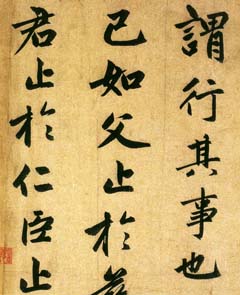 謂行其事也
已如父止於
君止於仁臣止